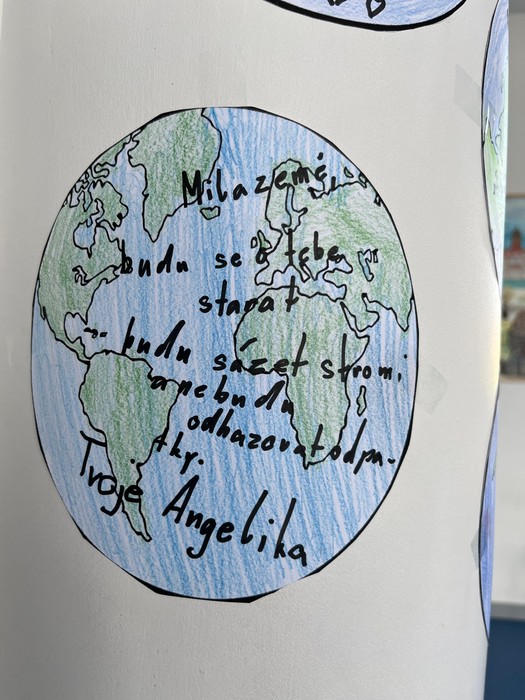 Milá země,
budu se o tebe
starat
budu sázet stromi
a nebudu
odhazovat odpa-
tky.
Tvoje Angelika